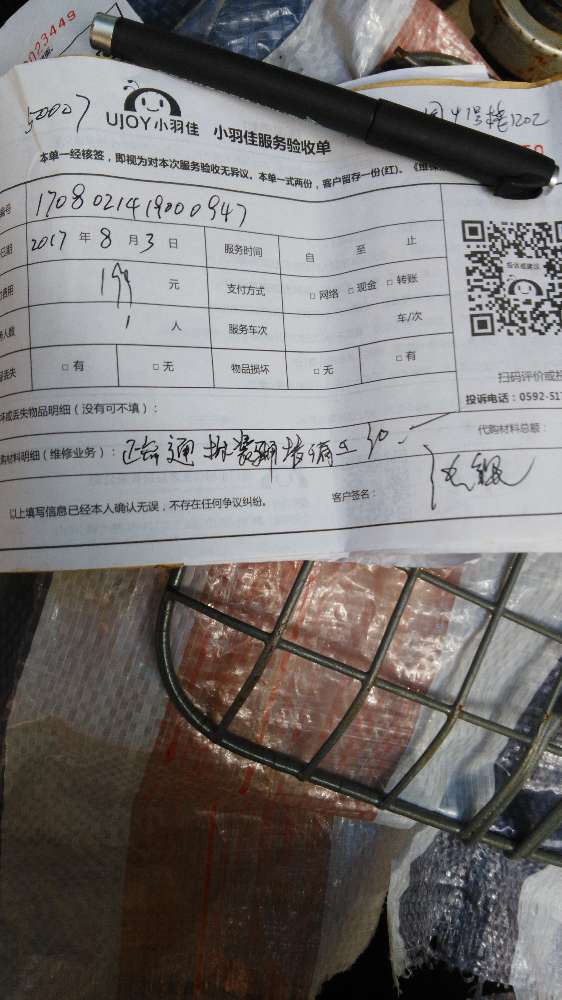 0023449
50007
UJOY小羽佳 小羽佳服务验收单
号楼1202
本单一经核签，即视为对本次服务验收无异议。本单一式两份，客户留存一份(红)。
编号 1708021419000947
日期 2017 年 8 月 3 日 服务时间 自 至 止
费用 199 元 支付方式 □ 网络 □ 现金 □ 转账
人数 1 人 服务车次 车/次
丢失 □ 有 □ 无 物品损坏 □ 无 □ 有
投诉或建议
扫码评价或投
投诉电话：0592-517
坏或丢失物品明细（没有可不填）：
代购材料总额：
购材料明细（维修业务）： 通
以上填写信息已经本人确认无误，不存在任何争议纠纷。 客户签名：